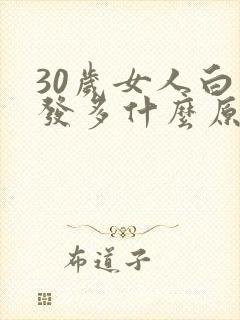 30歲女人白
發多什麼原
布道子